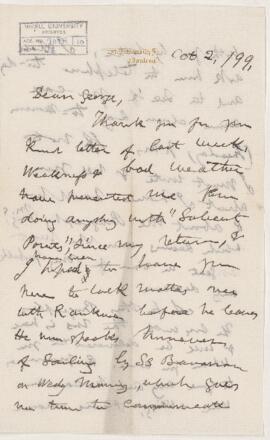 McGILL UNIVERSITY
ARCHIVES
ACC. NO.
REF.
Montreal
Oct 2, /99,
Dear George,
Thank you for your
kind letter of last week.
Weakness & bad weather
have prevented me from
doing anything with "Salient
Points," since my return, &
I hoped to have you
here to look matters over
with Rankine before he leaves
He now speaks however,
of Sailing by SS Bavarian
on Wedy Morning, which gives
no time to communicate